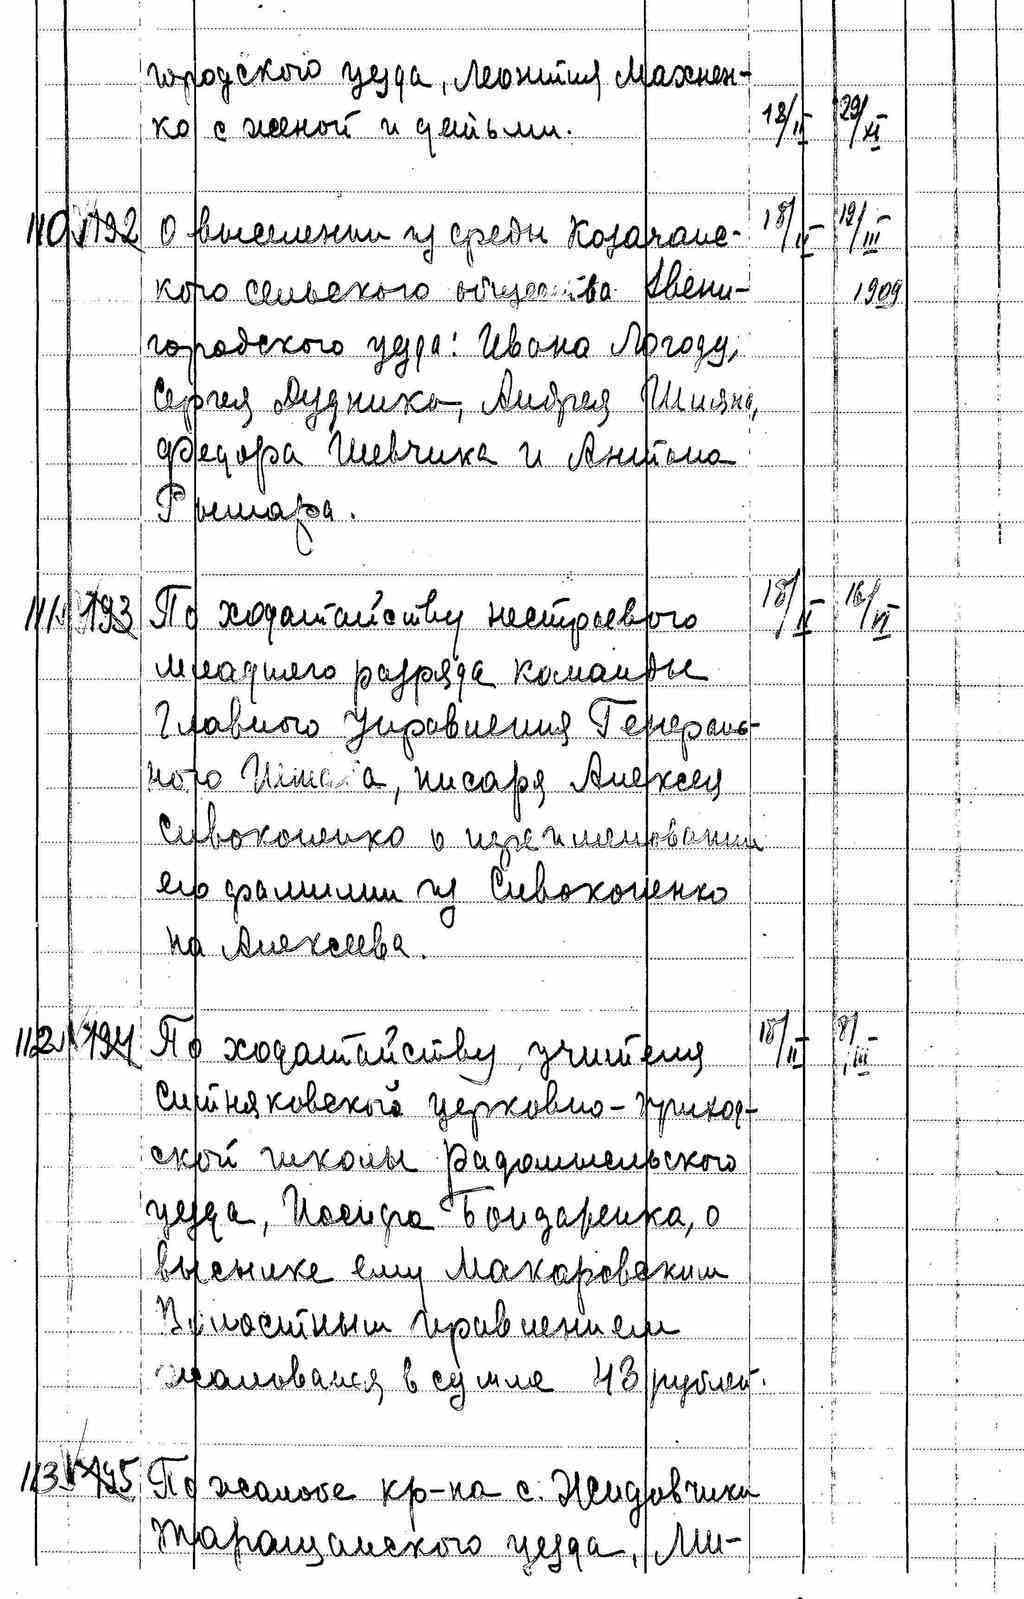 городского уезда, Леонтия Махнен-
ко с женой и детьми. 18/II 29/XI
110 192 О выселении из среды Козачанс- 18/II 19/III
кого сельского общества Звени- 1909
городского уезда: Ивана Логоду,
Сергея Дудника, Андрея Шияна,
Федора Шевчика и Антона
Рымаря.
111 193 По ходатайству нестроевого 18/II 16/VI
младшего разряда команды
Главного Управления Генераль-
ного Штаба, писаря Алексея
Сивоконенко о переименовании
его фамилии из Сивоконенко
на Алексеева.
112 194 По ходатайству учителя 18/II 8/III
Ситняковской церковно-приход-
ской школы Радомысльского
уезда, Иосифа Бондаренка, о
высылке ему Макаровским
Волостным правлением
жалования в сумме 43 рублей.
113 195 По жалобе кр-на с. Жидовчики
Таращанского уезда, Ми-